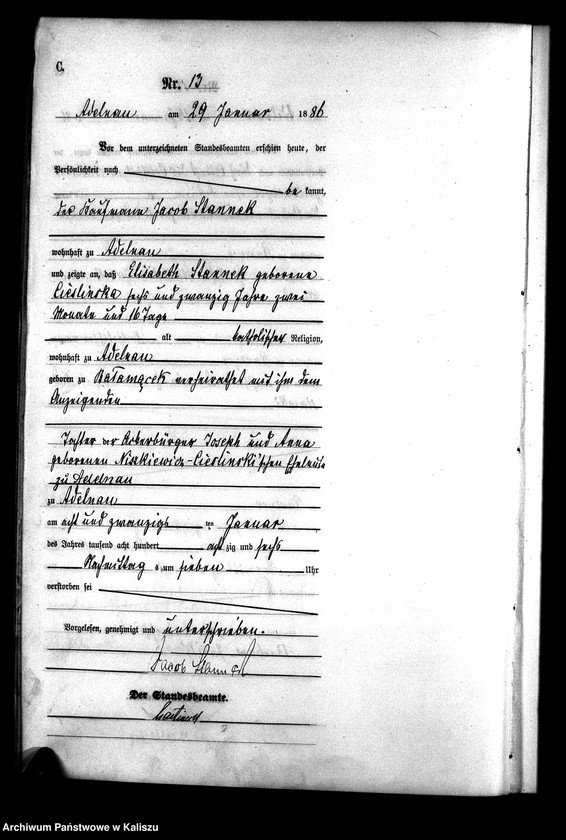 C.
Nr. 13
Adelnau am 29 Januar 1886
Vor dem unterzeichneten Standesbeamten erschien heute, der
Persönlichkeit nach
be kannt,
der Kaufmann Jacob Stannek
wohnhaft zu Adelnau
und zeigte an, daß Elisabeth Stannek geborene
Cieslinska sechs und zwanzig Jahre zwei
Monate und 16 Tage
alt katholischer Religion,
wohnhaft zu Adelnau
geboren zu verheirathet mit ihm dem
Anzeigenden
Tochter der Ackerbürger Joseph und Anna
geborenen Niskiewicz-Cieslinski'schen Eheleute
zu Adelnau
zu Adelnau
am acht und zwanzigs ten Januar
des Jahres tausend acht hundert acht zig und sechs
Nachmittag s um sieben Uhr
verstorben sei
Vorgelesen, genehmigt und unterschrieben.
Jacob Stannek
Der Standesbeamte.
Archiwum Państwowe w Kaliszu